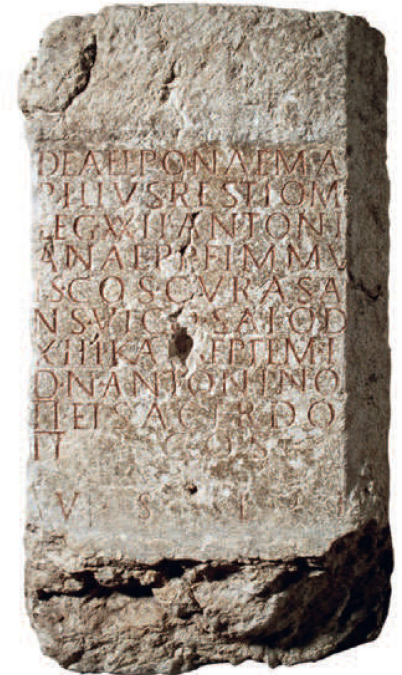 DEAEEPONAEMA
PILIVSRESTIOM
LEGXXIIANTONI
ANAEPPFIMMV
ISCOSCVRASA
NSVICOSALOD
XIIIIKA SEPTEM
DNANTONINO
IIETSACERDO
II COS
V S L